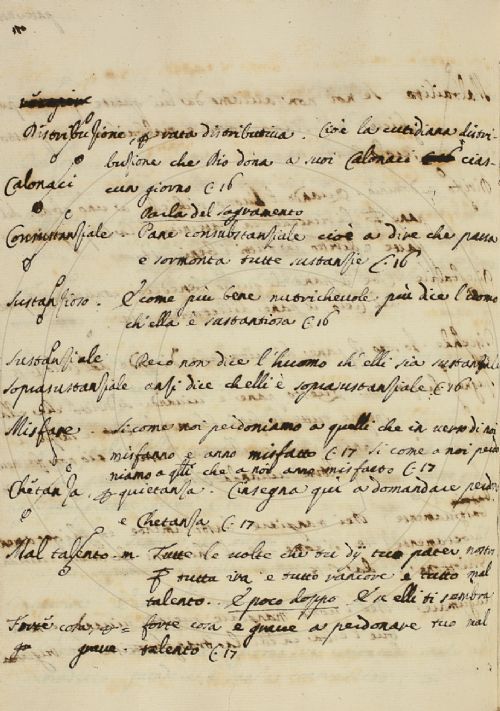 Distribuzione, p rata distributiva. Cioè la cutidiana distri-
buzione che Dio dona a suoi Calonaci cias-
Calonaci cun giorno C. 16
Parla del sagramento
Consustanziale. Pane consubstanziale cioè a dire che passa
e sormonta tutte sustanzie C. 16
Sustanzioso. È come più bene nutrichevole più dice l'uomo
ch'ella è sustantiosa C. 16
Sustanziale Però non dice l'huomo ch'elli sia sustanziale
soprasustanziale anzi dice ch'elli è soprasustanziale C. 16
Misfare. Si come noi perdoniamo a quelli che in verso di noi
misfanno e anno misfatto C. 17 Si come a noi perdo
niamo a qlli che a noi anno misfatto C. 17
Chetanza, p quietanza. C'insegna qui a domandare perdo
e Chetanza C. 17
Mal talento. m. Tutte le volte che tu dì tuo pater nostr
tutta ira e tutto rancore e tutto mal
talento. E poco doppo E s'elli ti sembra
Forte cosa, p = forte cosa e grave a perdonare tuo mal
grave. talento C. 17